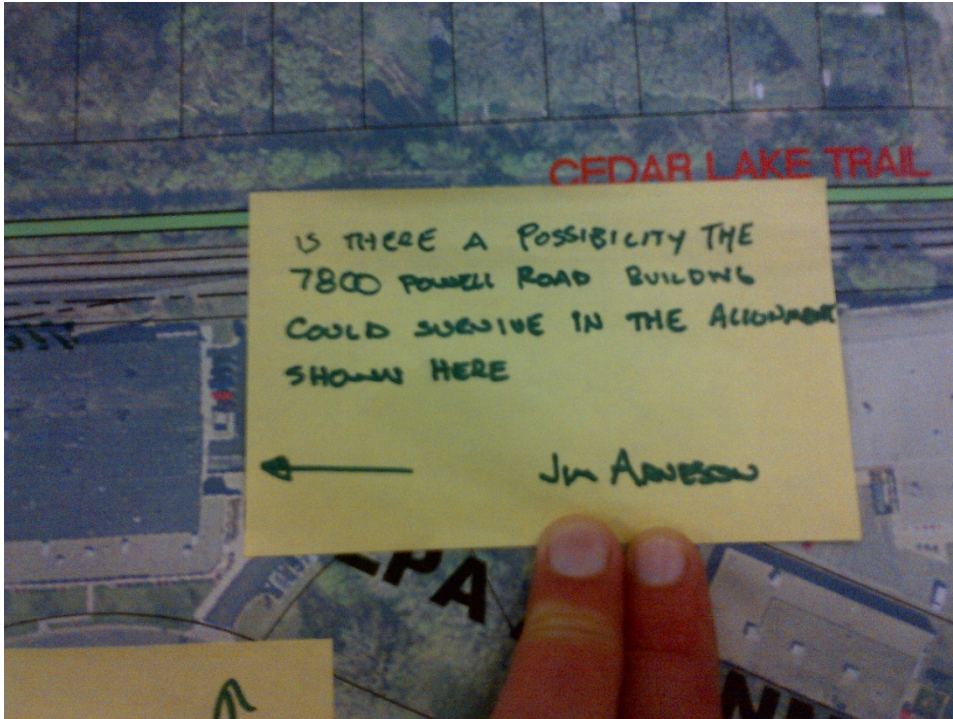 CEDAR LAKE TRAIL
IS THERE A POSSIBILITY THE
7800 POWELL ROAD BUILDING
COULD SURVIVE IN THE ALIGNMENT
SHOWN HERE
JIM ARNESON
LPA